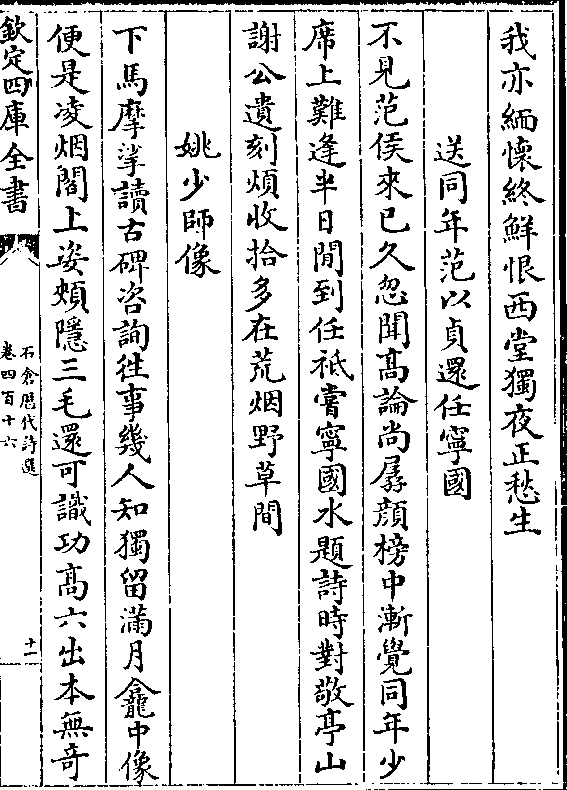 我亦緬懷終鮮恨西堂獨夜正愁生
送同年范以貞還任寧國
不見范侯來已久忽聞髙論尚孱顔榜中漸覺同年少
席上難逢半日閒到任祇嘗寧國水題詩時對敬亭山
謝公遺刻煩收拾多在荒烟野草間
姚少師像
下馬摩挲讀古碑咨詢往事幾人知獨留滿月龕中像
便是凌烟閣上姿頰隱三毛還可識功髙六出本無奇
欽定四庫全書
石倉歴代詩選
卷四百十六
十一